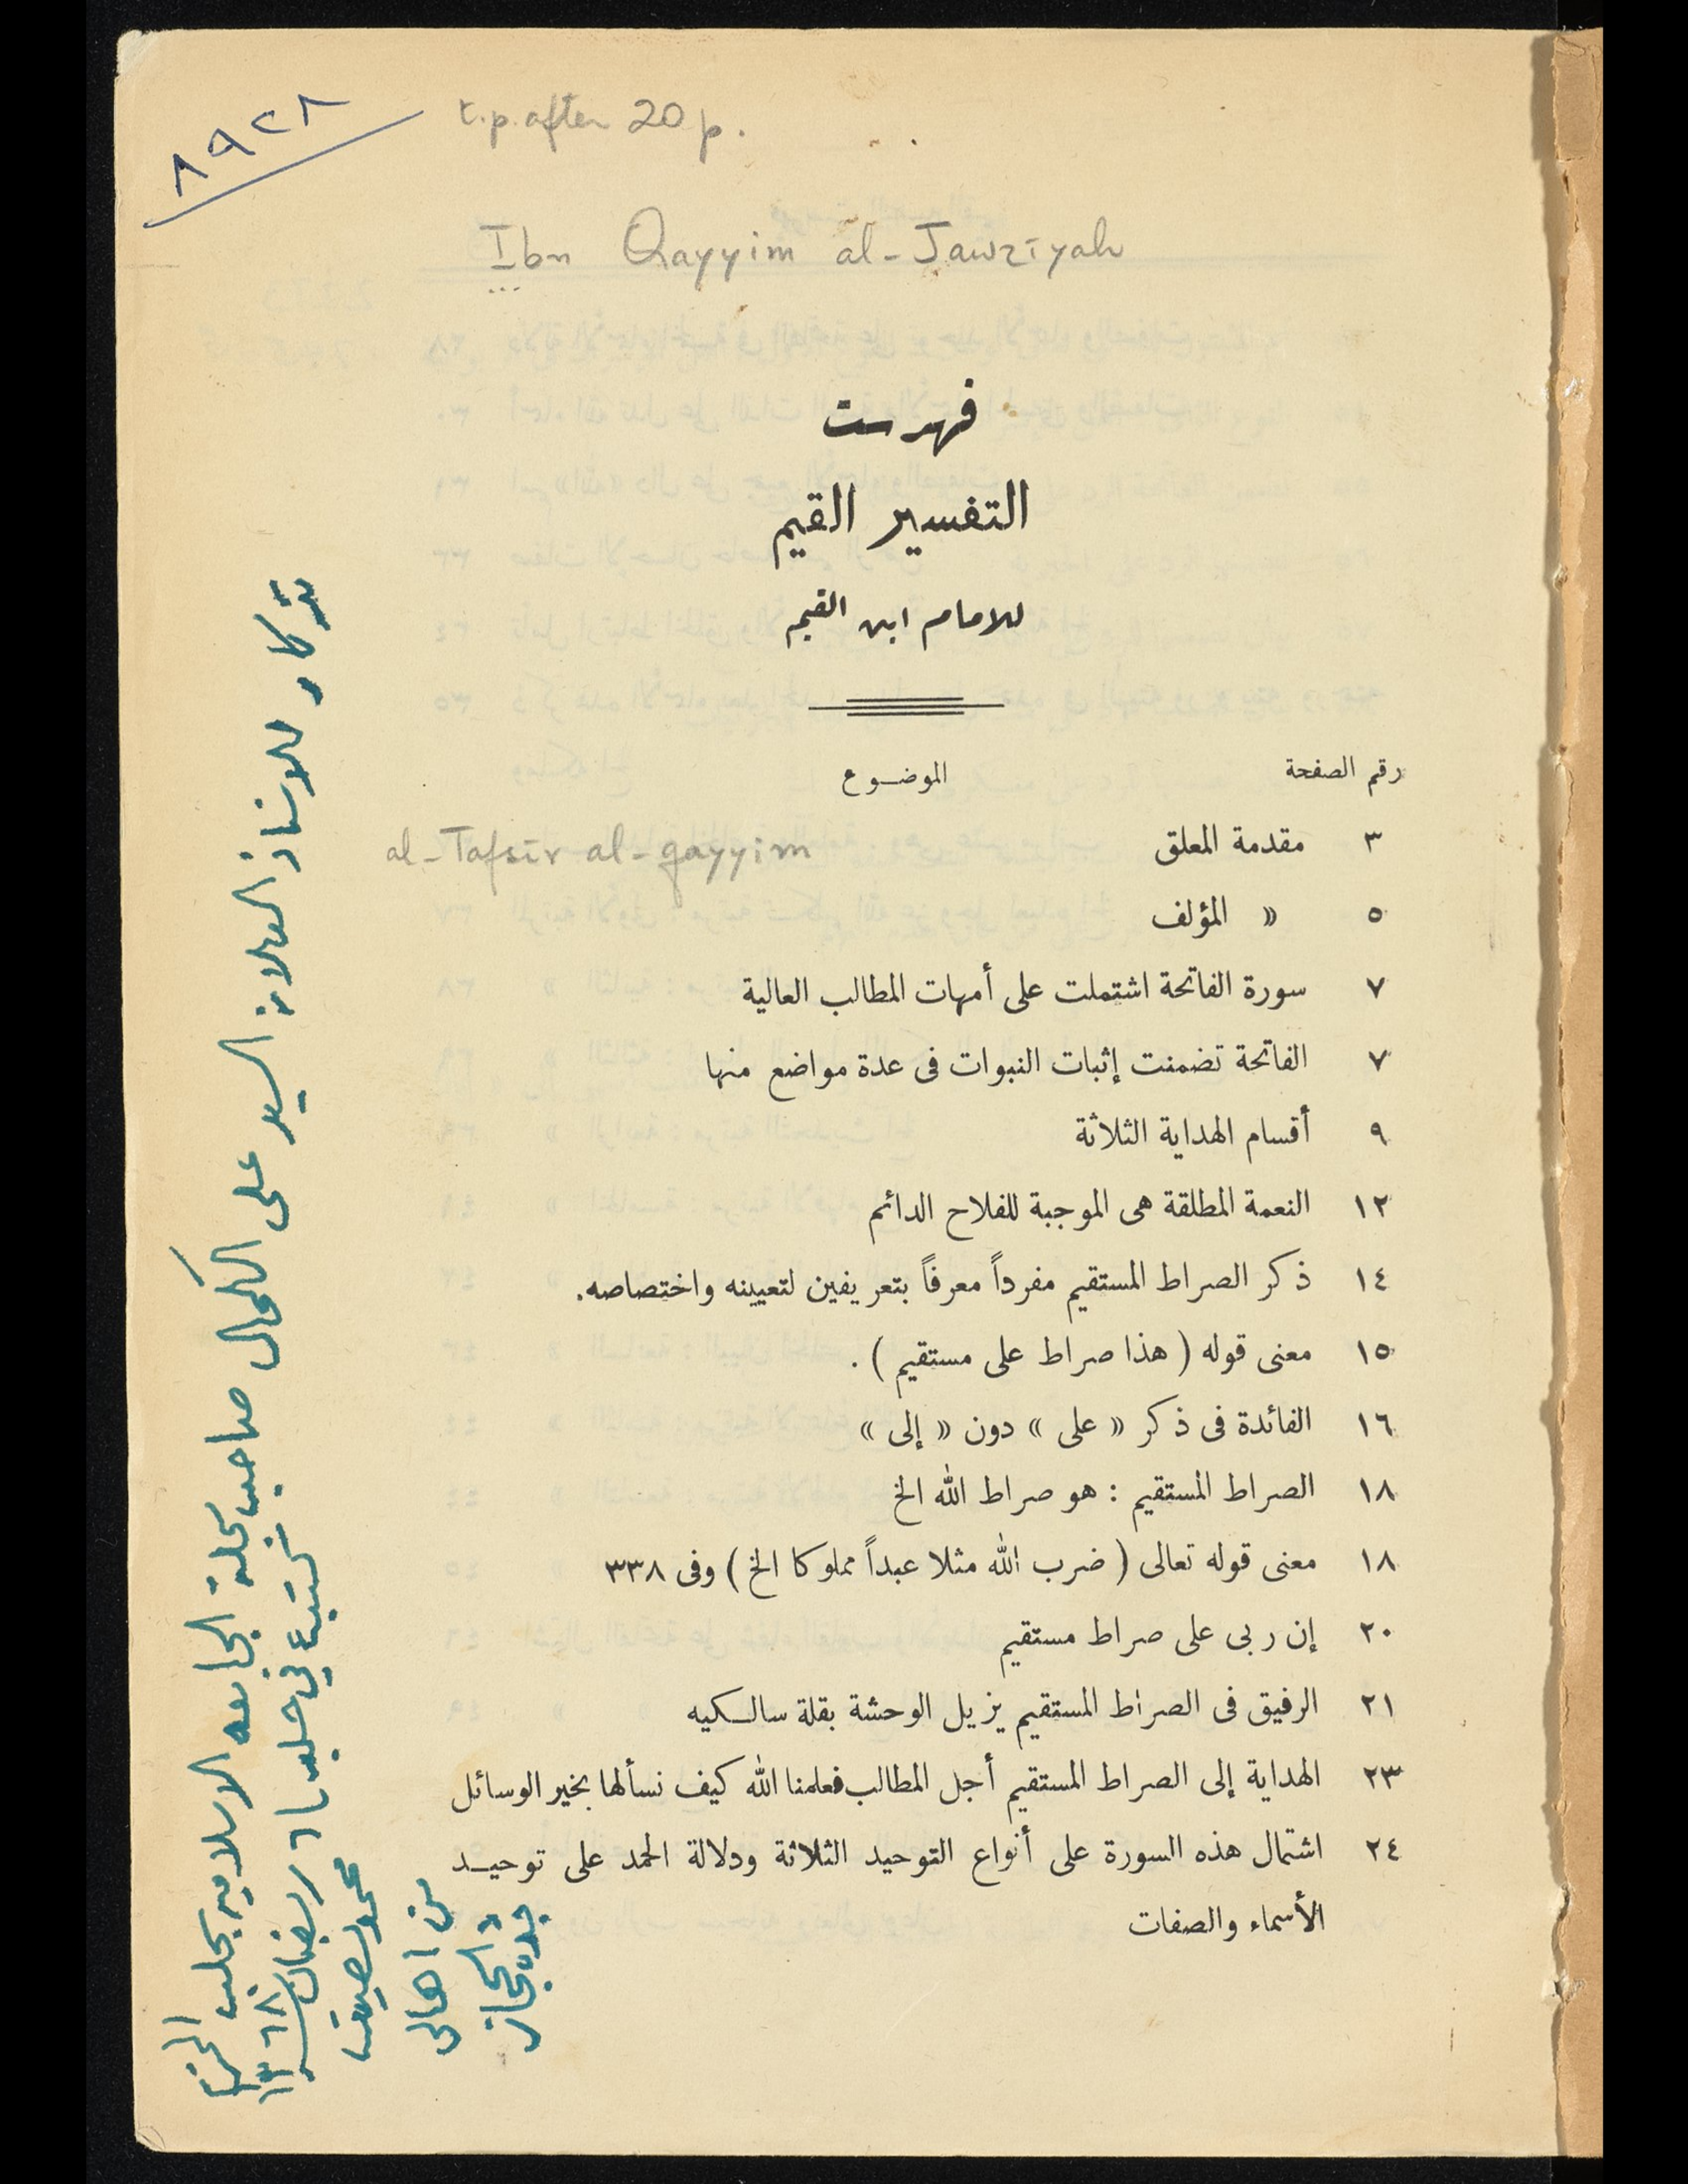 ٨٩٢٨
t.p. after 20 p.
Ibn Qayyim al-Jawzīyah
فهرست
التفسير القيم
للامام ابن القيم
رقم الصفحة الموضوع
٣ مقدمة المعلق
al-Tafsīr al-qayyim
٥ « المؤلف
٧ سورة الفاتحة اشتملت على أمهات المطالب العالية
٧ الفاتحة تضمنت إثبات النبوات فى عدة مواضع منها
٩ أقسام الهداية الثلاثة
١٢ النعمة المطلقة هى الموجبة للفلاح الدائم
١٤ ذكر الصراط المستقيم مفرداً معرفاً بتعريفين لتعيينه واختصاصه.
١٥ معنى قوله ( هذا صراط على مستقيم ) .
١٦ الفائدة فى ذكر « على » دون « إلى »
١٨ الصراط المستقيم : هو صراط الله الخ
١٨ معنى قوله تعالى ( ضرب الله مثلا عبداً مملوكا الخ ) وفى ٣٣٨
٢٠ إن ربى على صراط مستقيم
٢١ الرفيق فى الصراط المستقيم يزيل الوحشة بقلة سالكيه
٢٣ الهداية إلى الصراط المستقيم أجل المطالب فعلمنا الله كيف نسألها بخير الوسائل
٢٤ اشتمال هذه السورة على أنواع التوحيد الثلاثة ودلالة الحمد على توحيد
الأسماء والصفات
تذكار للاستاذ العلامة السيد على الكحال صاحب مجلة الجامعه الاسلاميه بحلب
كتب في حلب ٦ رمضان ١٣٦٨
محمد نصيف
من اهالى
جدة الحجاز